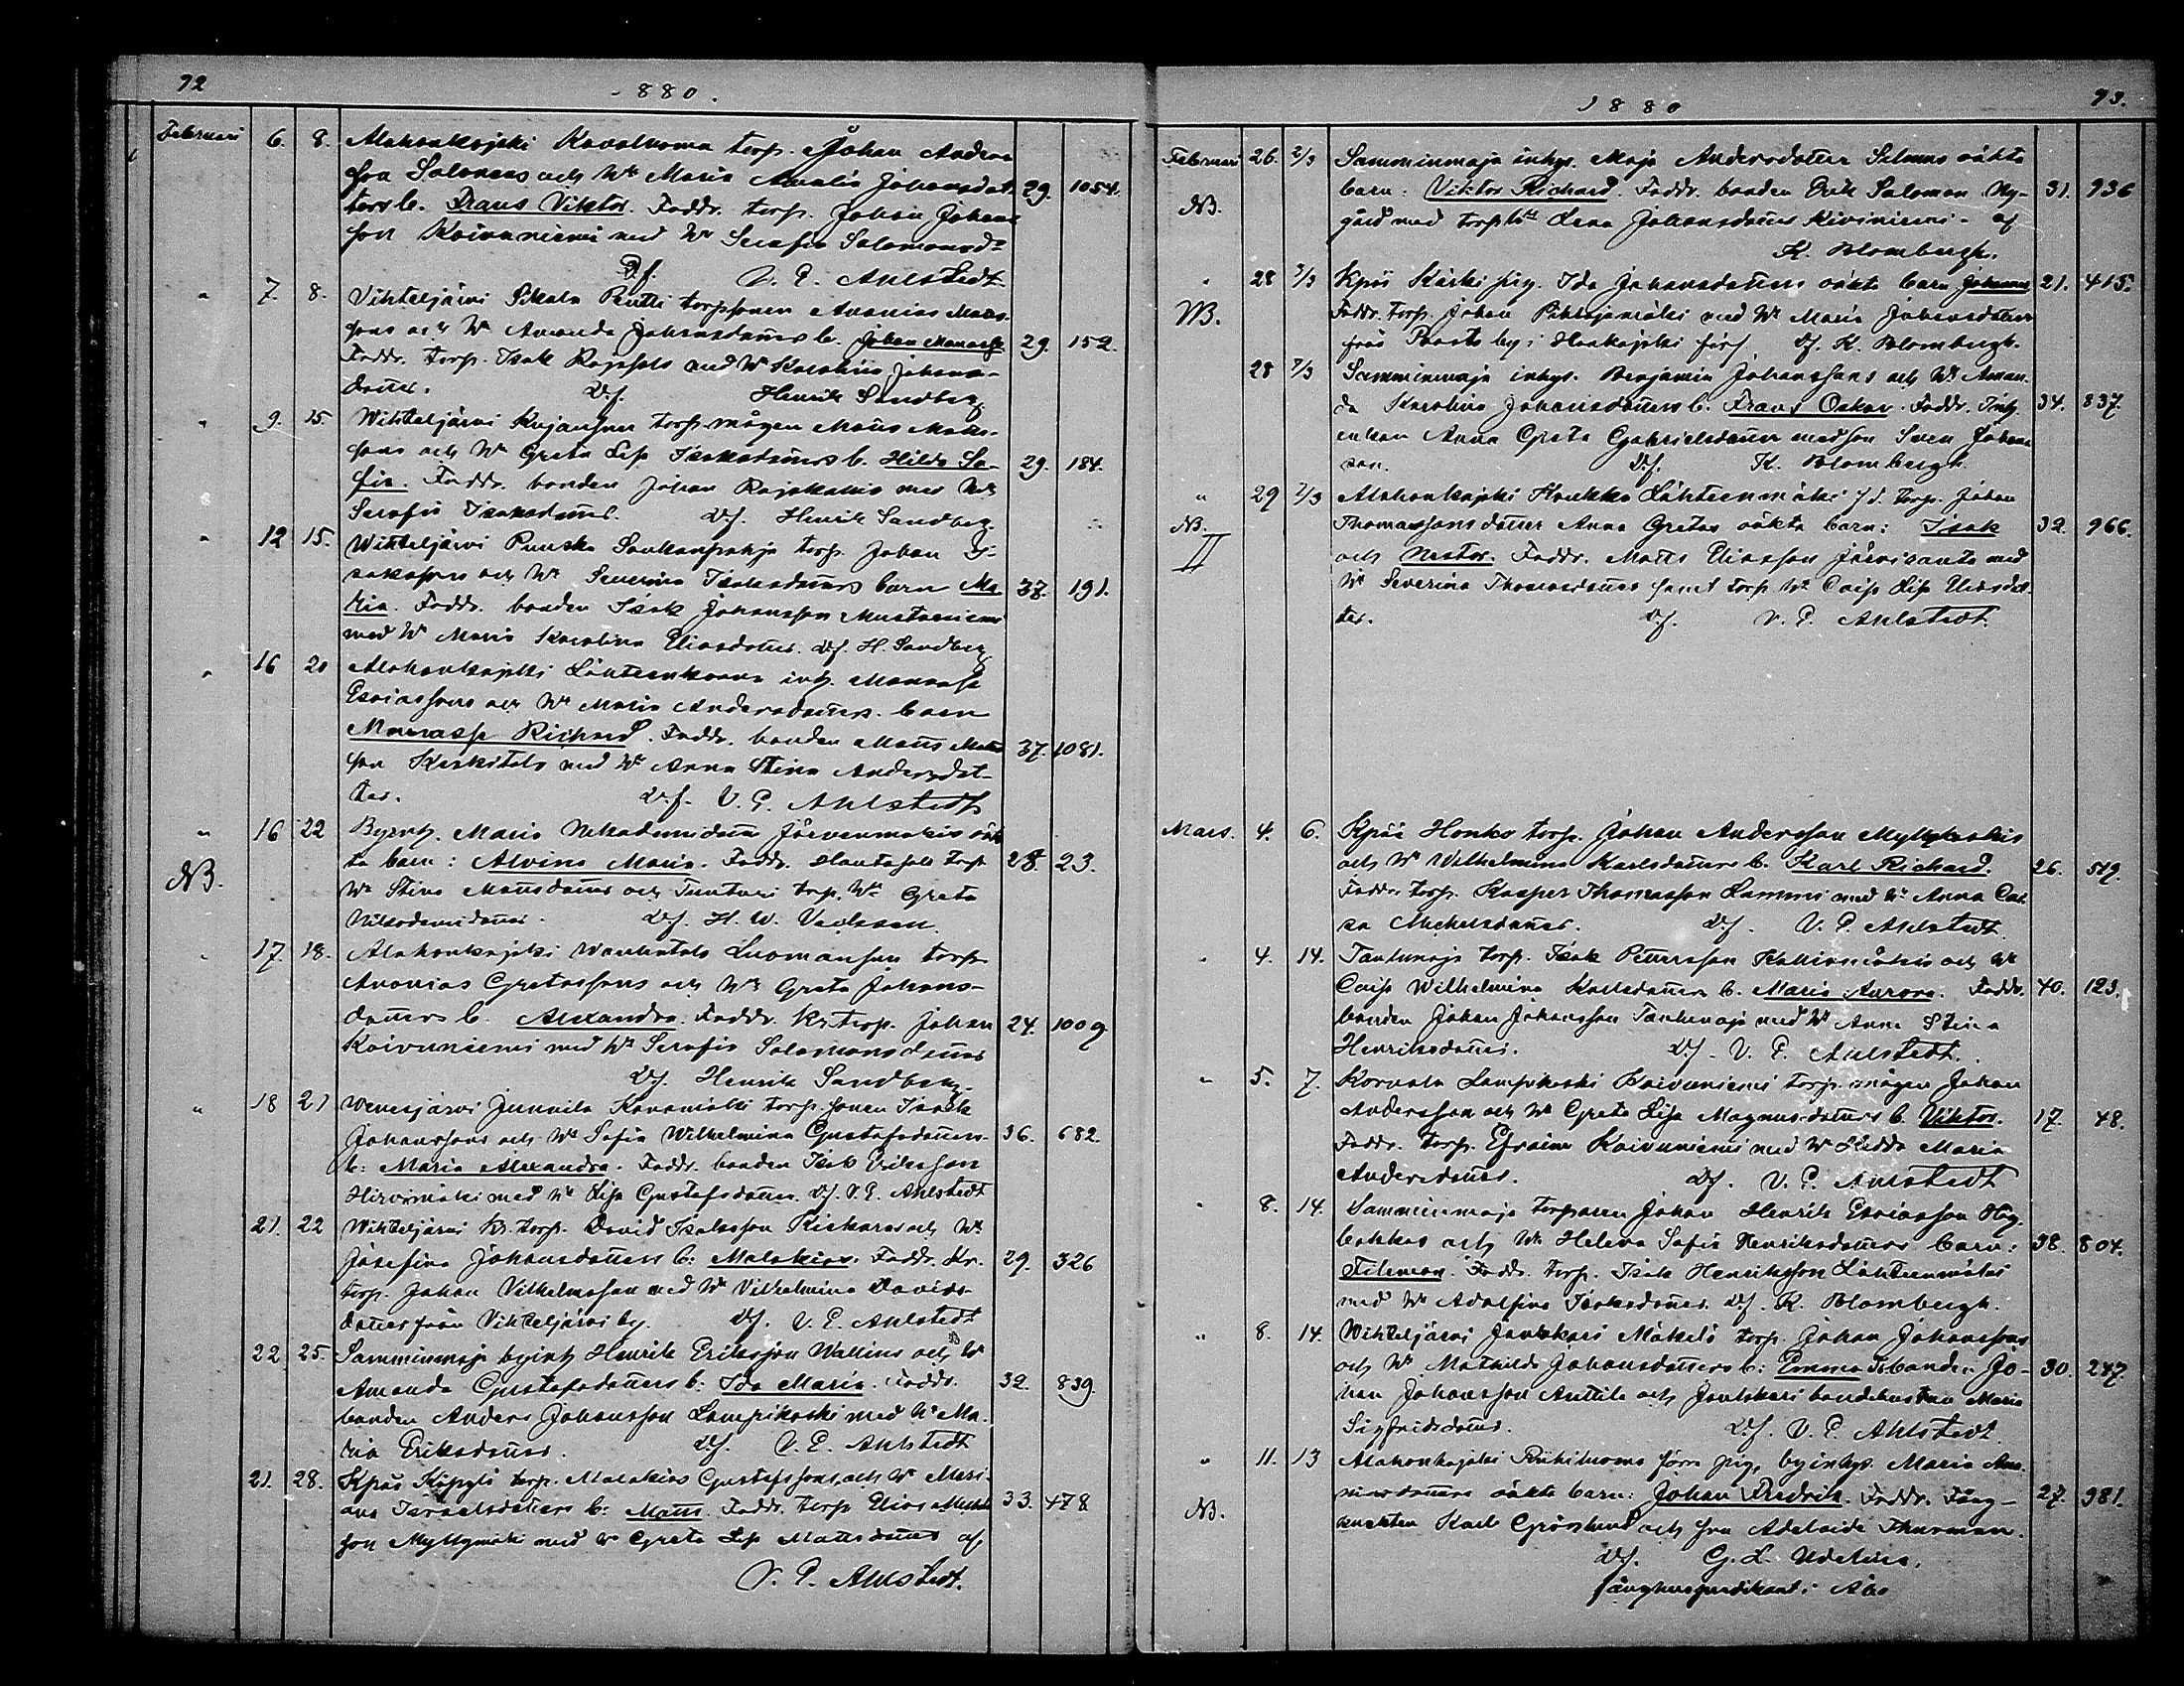 92
1880.
Februari 6. 8. Alahonkajoki Kovaluoma torp. Johan Anders-
son Salonens och Wn Maria Amalia Johansdot-
ters b. Frans Viktor. Faddr. torp. Johan Johans-
son Koivuniemi med Wn Serafia Salomonsd:r 29. 1054.
Df. V. E. Ahlstedt.
" 7. 8. Vihteljärvi Pentti torpsonen Ananias Mats-
sons och Wn Amanda Johansdotters b. Johan Manasse
Faddr. torp. Isak med Wn Karolina Johans-
dotter. Df. Henrik Sandberg 29. 152.
" 9. 15. Wihteljärvi Kujansuu torp. mågen Matts Matts-
sons och Wn Greta Lisa Isaksdotters b. Hilda So-
fia. Faddr. bonden Johan med Wn
Serafia Isaksdotter. Df. Henrik Sandberg. 29. 184.
" 12 15. Wihteljärvi Punska torp. Johan I-
saksons och Wn Severina Isaksdotters barn Ma-
ria. Faddr. bonden Isak Johansson Mustaniemi
med Wn Maria Karolina Eliasdotter. Df. H. Sandberg 37. 191.
" 16 20 Alahonkajoki Lähteenkorva inh. Manasse
Esaiassons och Wn Maria Andersdotters barn
Manasse Richard. Faddr. bonden Matts Matts-
son Keskitalo med Wn Anna Stina Andersdot-
ter. Df. V. E. Ahlstedt 37. 1081.
" 16 22 Byinh. Maria Nikodemidotter Järvenmäkis oäk-
ta barn: Alvina Maria. Faddr. torp.
Wn Stina Mattsdotter och Tunturi torp. Wn Greta
Nikodemidotter. Df. H. W. 28. 23.
NB.
" 17. 18. Alahonkajoki Wanhatalo Luomansuu torp.
Ananias Gustafssons och Wn Greta Johans-
dotters b. Alexandra. Faddr. Kr. torp. Johan
Koivuniemi med Wn Serafia Salomonsdotter
Df. Henrik Sandberg. 24. 1009
" 18 21 Wenesjärvi Junnila Kanamäki torp. sonen Isak
Johanssons och Wn Sofia Wilhelmina Gustafsdotters
b: Maria Alexandra. Faddr. bonden Isak Eriksson
Hirvimäki med Wn Lisa Gustafsdotter. Df. V. E. Ahlstedt 36. 682.
21. 22 Wihteljärvi Kr. torp. David Isaksson Riskaras och Wn
Josefina Johansdotters b: Malakias. Faddr. Kr.
torp. Johan Vilhelmsson med Wn Vilhelmina Davids-
dotter från Vihteljärvi by. Df. V. E. Ahlstedt 29. 326
22 25. Samminmaja byinh Henrik Eriksson Wallins och Wn
Amanda Gustafsdotters b: Ida Maria. Faddr.
bonden Anders Johansson Lampikoski med Wn Ma-
ria Eriksdotter. Df. V. E. Ahlstedt 32. 839.
21. 28. Kpää Käpylä torp. Malakias Gustafssons och Wn Mari-
ana Israelsdotters b: Matts. Faddr. torp. Elias Michels-
son Myllymäki med Wn Greta Lisa Mattsdotter af
V. E. Ahlstedt. 33. 478
1880
93.
Februari 26. 2/3 Samminmaja inhys. Maja Andersdotter Salmens oäkta
barn: Viktor Richard. Faddr. bonden Erik Salomon Ny-
gård med torp. Wn Lena Johansdotter Kiviniemi af
K. Blombergh. 31. 936
NB.
" 28 7/3 Kpää Kärki pig. Ida Johansdotters oäkta barn Johannes
Faddr. torp. Johan Pihlajamäki med Wn Maria Johansdotter
från by i Honkajoki förs. Df. K. Blombergh. 21. 415.
NB.
28 7/3 Samminmaja inhys. Benjamin Johanssons och Wn Aman-
da Karolina Johansdotters b. Frans Oskar. Faddr. Inh.
enkan Anna Greta Gabrielsdotter med son Sven Johans-
son. Df. K. Blombergh. 34. 837.
" 29 7/3 Alahonkajoki Houkko Lähteenmäki f.d. torp. Johan
Thomassons dotter Anna Gretas oäkta barn: Isak
och Nestor. Faddr. Matts Eliasson Järviranta med
Wn Severina Thomasdotter samt torp. Wn Caisa Lisa Eliasdot-
ter. Df. V. E. Ahlstedt. 32. 966.
NB.
II
Mars. 4. 6. Kpää Honko torp. Johan Andersson Myllykoskis
och Wn Wilhelmina Karlsdotters b. Karl Richard.
Faddr. torp. Kasper Thomasson Lammi med Wn Anna Cai-
sa Michelsdotter. Df. V. E. Ahlstedt. 26. 519.
" 4. 14. Taulunoja torp. Isak Pettersson Kalliomäkis och Wn
Caisa Wilhelmina Karlsdotters b. Maria Aurora. Faddr.
bonden Johan Johansson Taulunoja med Wn Anna Stina
Henriksdotter. Df. V. E. Ahlstedt. 40. 123.
" 5. 7. Korvala Lampikoski Koivuniemi torp. mågen Johan
Andersson och Wn Greta Lisa Magnusdotters b. Viktor.
Faddr. torp. Efraim Koivuniemi med Wn Hedda Maria
Andersdotter. Df. V. E. Ahlstedt 17. 48.
" 8. 14. Samminmaja torparen Johan Henrik Esaiasson
och Wn Helena Sofia Henriksdotters barn:
Filemon. Faddr. torp. Isak Henriksson Lähteenmäki
med Wn Adolfina Isaksdotter. Df. K. Blombergh. 38. 804.
" 8. 14. Wihteljärvi Jantskari Mäkelä torp. Johan Johanssons
och Wn Mathilda Johansdotters b: Emma F. bonden Jo-
han Johansson Anttila och Jantskari bondehustrun Maria
Sigfridsdotter. Df. V. E. Ahlstedt. 30. 247.
" 11. 13 Alahonkajoki Riihiluoma förra pig, byinhys. Maria
oäkta barn: Johan Fredrik. Faddr. Fång-
knekten Karl Grönlund och fru Adelaide Thurman.
Df. G. L.
fängelsepredikant i Åbo 27. 981.
NB.